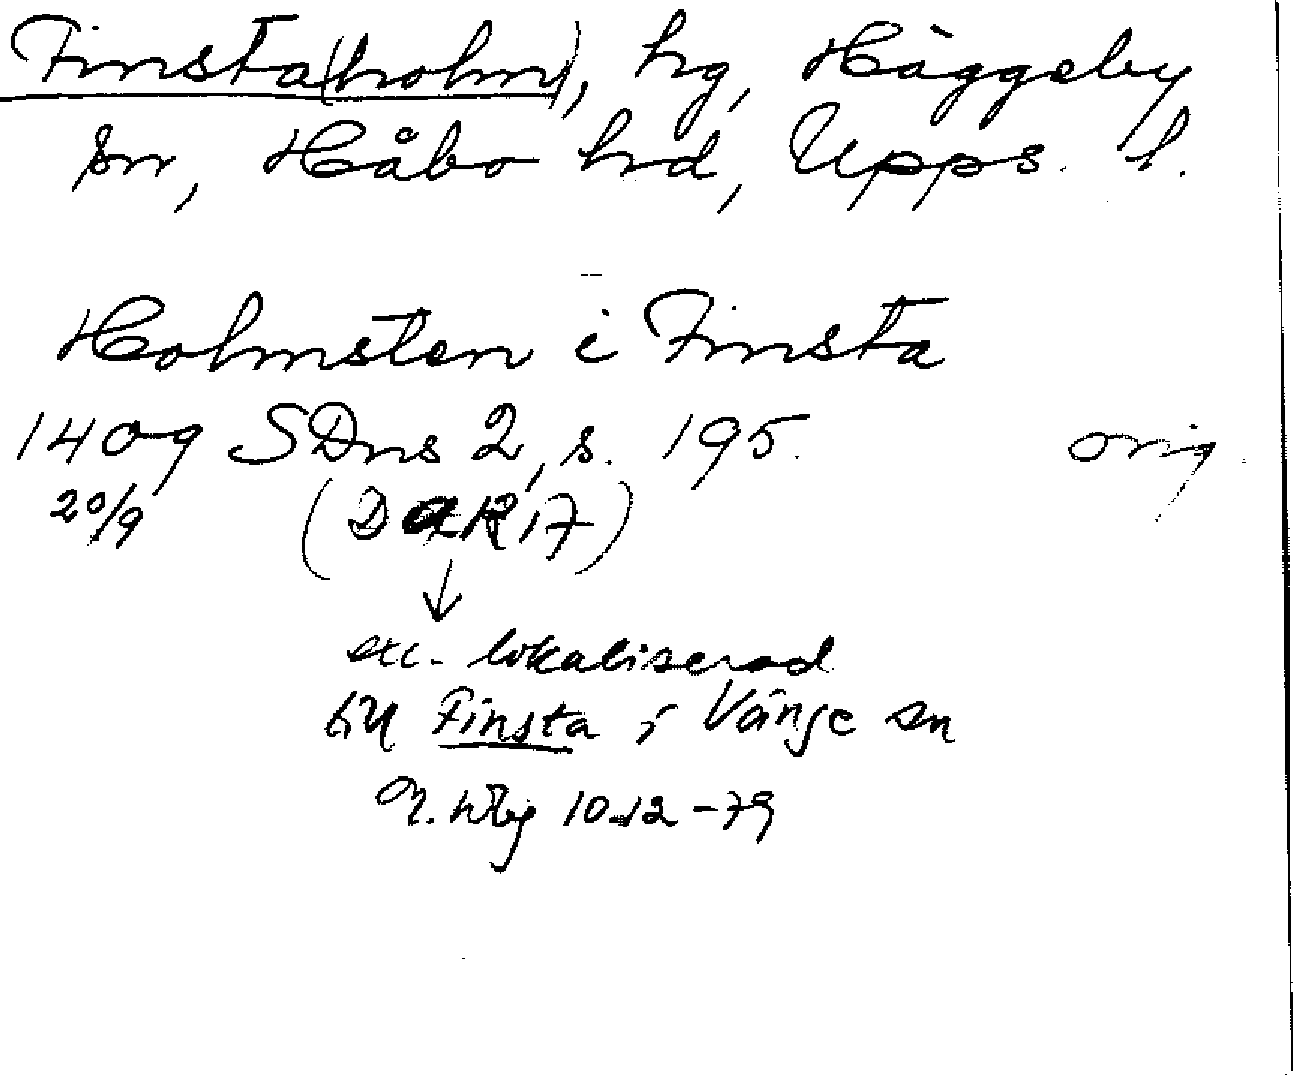 Finsta(holm), hg, Häggeby
sn, Håbo hd, Upps. l.
Holmsten i Finsta
1409 SDns 2, s. 195. orig.
20/9 (D 17)
lokaliserad
till Finsta i Vänge sn
10.12-79